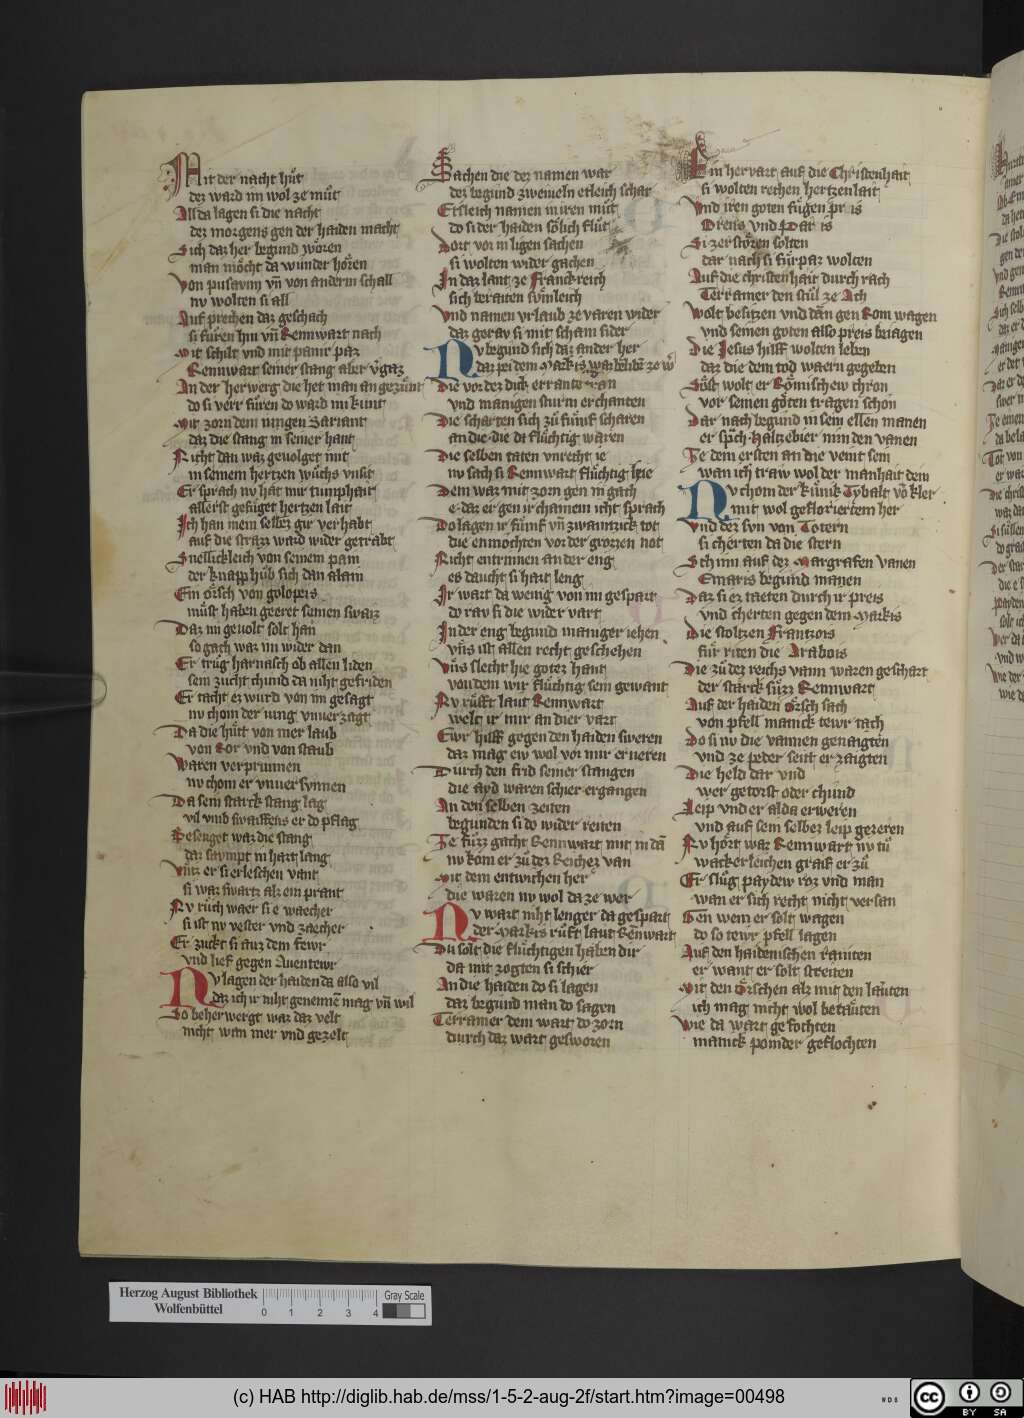 Mit der nacht hůt
der ward im wol ze můt
All da lagen si die nacht
der morgens gen der haiden macht
Sich daz her begund wŏren
man mŏcht da wunder hŏren
Von pusavin vn̄ von anderm schall
nv wolten si all
Auf prechen daz geschach
si fůren hin vn̄ Rennwart nach
Mit schilt vnd mit panir paz
Rennwart seiner stang aber v̓gaz
An der herwerg die het man an gezůnt
do si verr fůren do ward im kunt
Mit zorn dem iungen Sariant
daz die stang in seiner hant
Nicht dan waz geuolget mit
in seinem hertzen wůchs vnsit
Er sprach nv hat mir tumphait
allerst gefůget hertzen lait
Ich han mein selbez gir verhabt
auf die straz ward wider getrabt
Snellickleich von seinem pam
der knapp hůb sich dan alain
Ein ŏrsch von golopeis
můst haben geeret seinen swaiz
Daz im geuolt solt han
so gach waz im wider dan
Er trůg harnasch ob allen liden
sein zucht chund da niht gefriden
Er tacht ez wurd von im gesagt
nv chom der iung vnuerzagt
Da die hůtt von mer laub
von Ror vnd von staub
Waren verprunnen
nv chom er vnuersunnen
Da sein starck stang lag
vil vmb swaiffens er do pflag
Besenget waz die stang
daz stumpt in hart lang
Vntz er si erleschen vant
si waz swartz alz ein prant
Nv růch waer si e waecher
si ist nv vester vnd zaecher
Er zuckt si auz dem fewr
vnd lief gegen Auentewr
Nv lagen der haiden da also vil
daz ich ir niht genemē mag vn̄ wil
So beherwergt waz daz velt
nicht wan mer vnd gezelt
Sachen die dez namen war
dez begund zweiueln etleich schar
Etsleich namen in iren můt
do si der haiden sŏlich flůt
Dort vor in ligen sachen
si wolten wider gachen
In daz lant ze Franckreich
sich berieten sunleich
Vnd namen vrlaub ze varen wider
daz geraw si mit scham sider
Nv begund sich daz ander her
daz pei dem Markis
Die vor dez dick errante wan
vnd manigen sturm erchanten
Die scharten sich zů fůnf scharen
an die die da flůchtig waren
Die selben taten vnrecht ie
nv sach si Rennwart flůchtig hie
Dem waz mit zorn gen in gach
e daz er gen ir chainem icht sprach
Do lagen ir fůnf vn̄ zwaintzick tot
die enmochten vor der grozen not
Nicht entrinnen an der eng
es daucht si hart leng
Ir wart da wenig von im gespart
do rav si die wider vart
In der eng begund maniger iehen
vns ist allen recht geschehen
Vns slecht hie gotez hant
von dem wir flůchtig sein gewant
Nv růfft laut Rennwart
welt ir mir an dier vart
Ewr hilff gegen den haiden sweren
daz mag ew wol vor mir erneren
Durch den frid seiner stangen
die ayd waren schier ergangen
An den selben zeiten
begunden si do wider reiten
Ze fůzz gacht Rennwart mit in dā
nv kom er zů dez Reichez van
Mit dem entwichen her
die waren nv wol da ze wer
Nv wart niht lenger da gespart
der Markis růft laut Rēnwart
Du solt die flůchtigen haben dir
da mit zogten si schier
An die haiden do si lagen
daz begund man do sagen
Terramer dem wart do zorn
durch daz wart gesworen
Ein hervart auf die Christenhait
si wolten rechen hertzenlait
Vnd iren goten fůgen preis
Oreus vnd Paris
Si zerstŏren solten
dar nach si fůrpaz wolten
Auf die christenhait durch rach
Terramer den stůl ze Ach
Wolt besitzen vnd dān gen Rom wagen
vnd seinen goten also preis beiagen
Die Jesus hilff wolten leben
daz die dem tod waern gegeben
Sůst wolt er Rŏmischew chron
vor seinen gŏten tragen schon
Dar nach begund in sein ellen manen
er sp̄ch Haltzebier nim den vanen
Ze dem ersten an die veint sein
wan ich traw wol der manhait dein
Nv chom der kůnik Tybalt vō kler
mit wol gefloriertem her
Vnd dez sun von Totern
si cherten da die stern
Schin auf dez Margrafen vanen
Emaris begund manen
Daz si ez taeten durch ir preis
vnd cherten gegen dem Markis
Die stoltzen Frantzois
fůr riten die Arabois
Die zů dez reichs vann waren geschart
der starck fůzz Rennwart
Auf der haiden ŏrsch sach
von pfell manick tewr tach
Do si nv die vannen genaigten
vnd ze peder seitt erzaigten
Die held dar vnd
wer getorst oder chund
Leip vnd er alda erweren
vnd auf sein selbez leip gezeren
Nv hŏrt waz Rennwart nv tů
wackerleichen graif er zů
Er slůg paydew roz vnd man
wan er sich recht nicht versan
Den wem er solt wagen
do so tewr pfell lagen
Auf den haidenischen rauiten
er want er solt streiten
Mit den Ŏrschen alz mit den laůten
ich mag nicht wol betaůten
Wie da wart gefochten
manick poinder geflochten
Herzog August Bibliothek
Wolfenbüttel
0 1 2 3 4
Gray Scale
(c) HAB http://diglib.hab.de/mss/1-5-2-aug-2f/start.htm?image=00498
WDB
CC BY SA